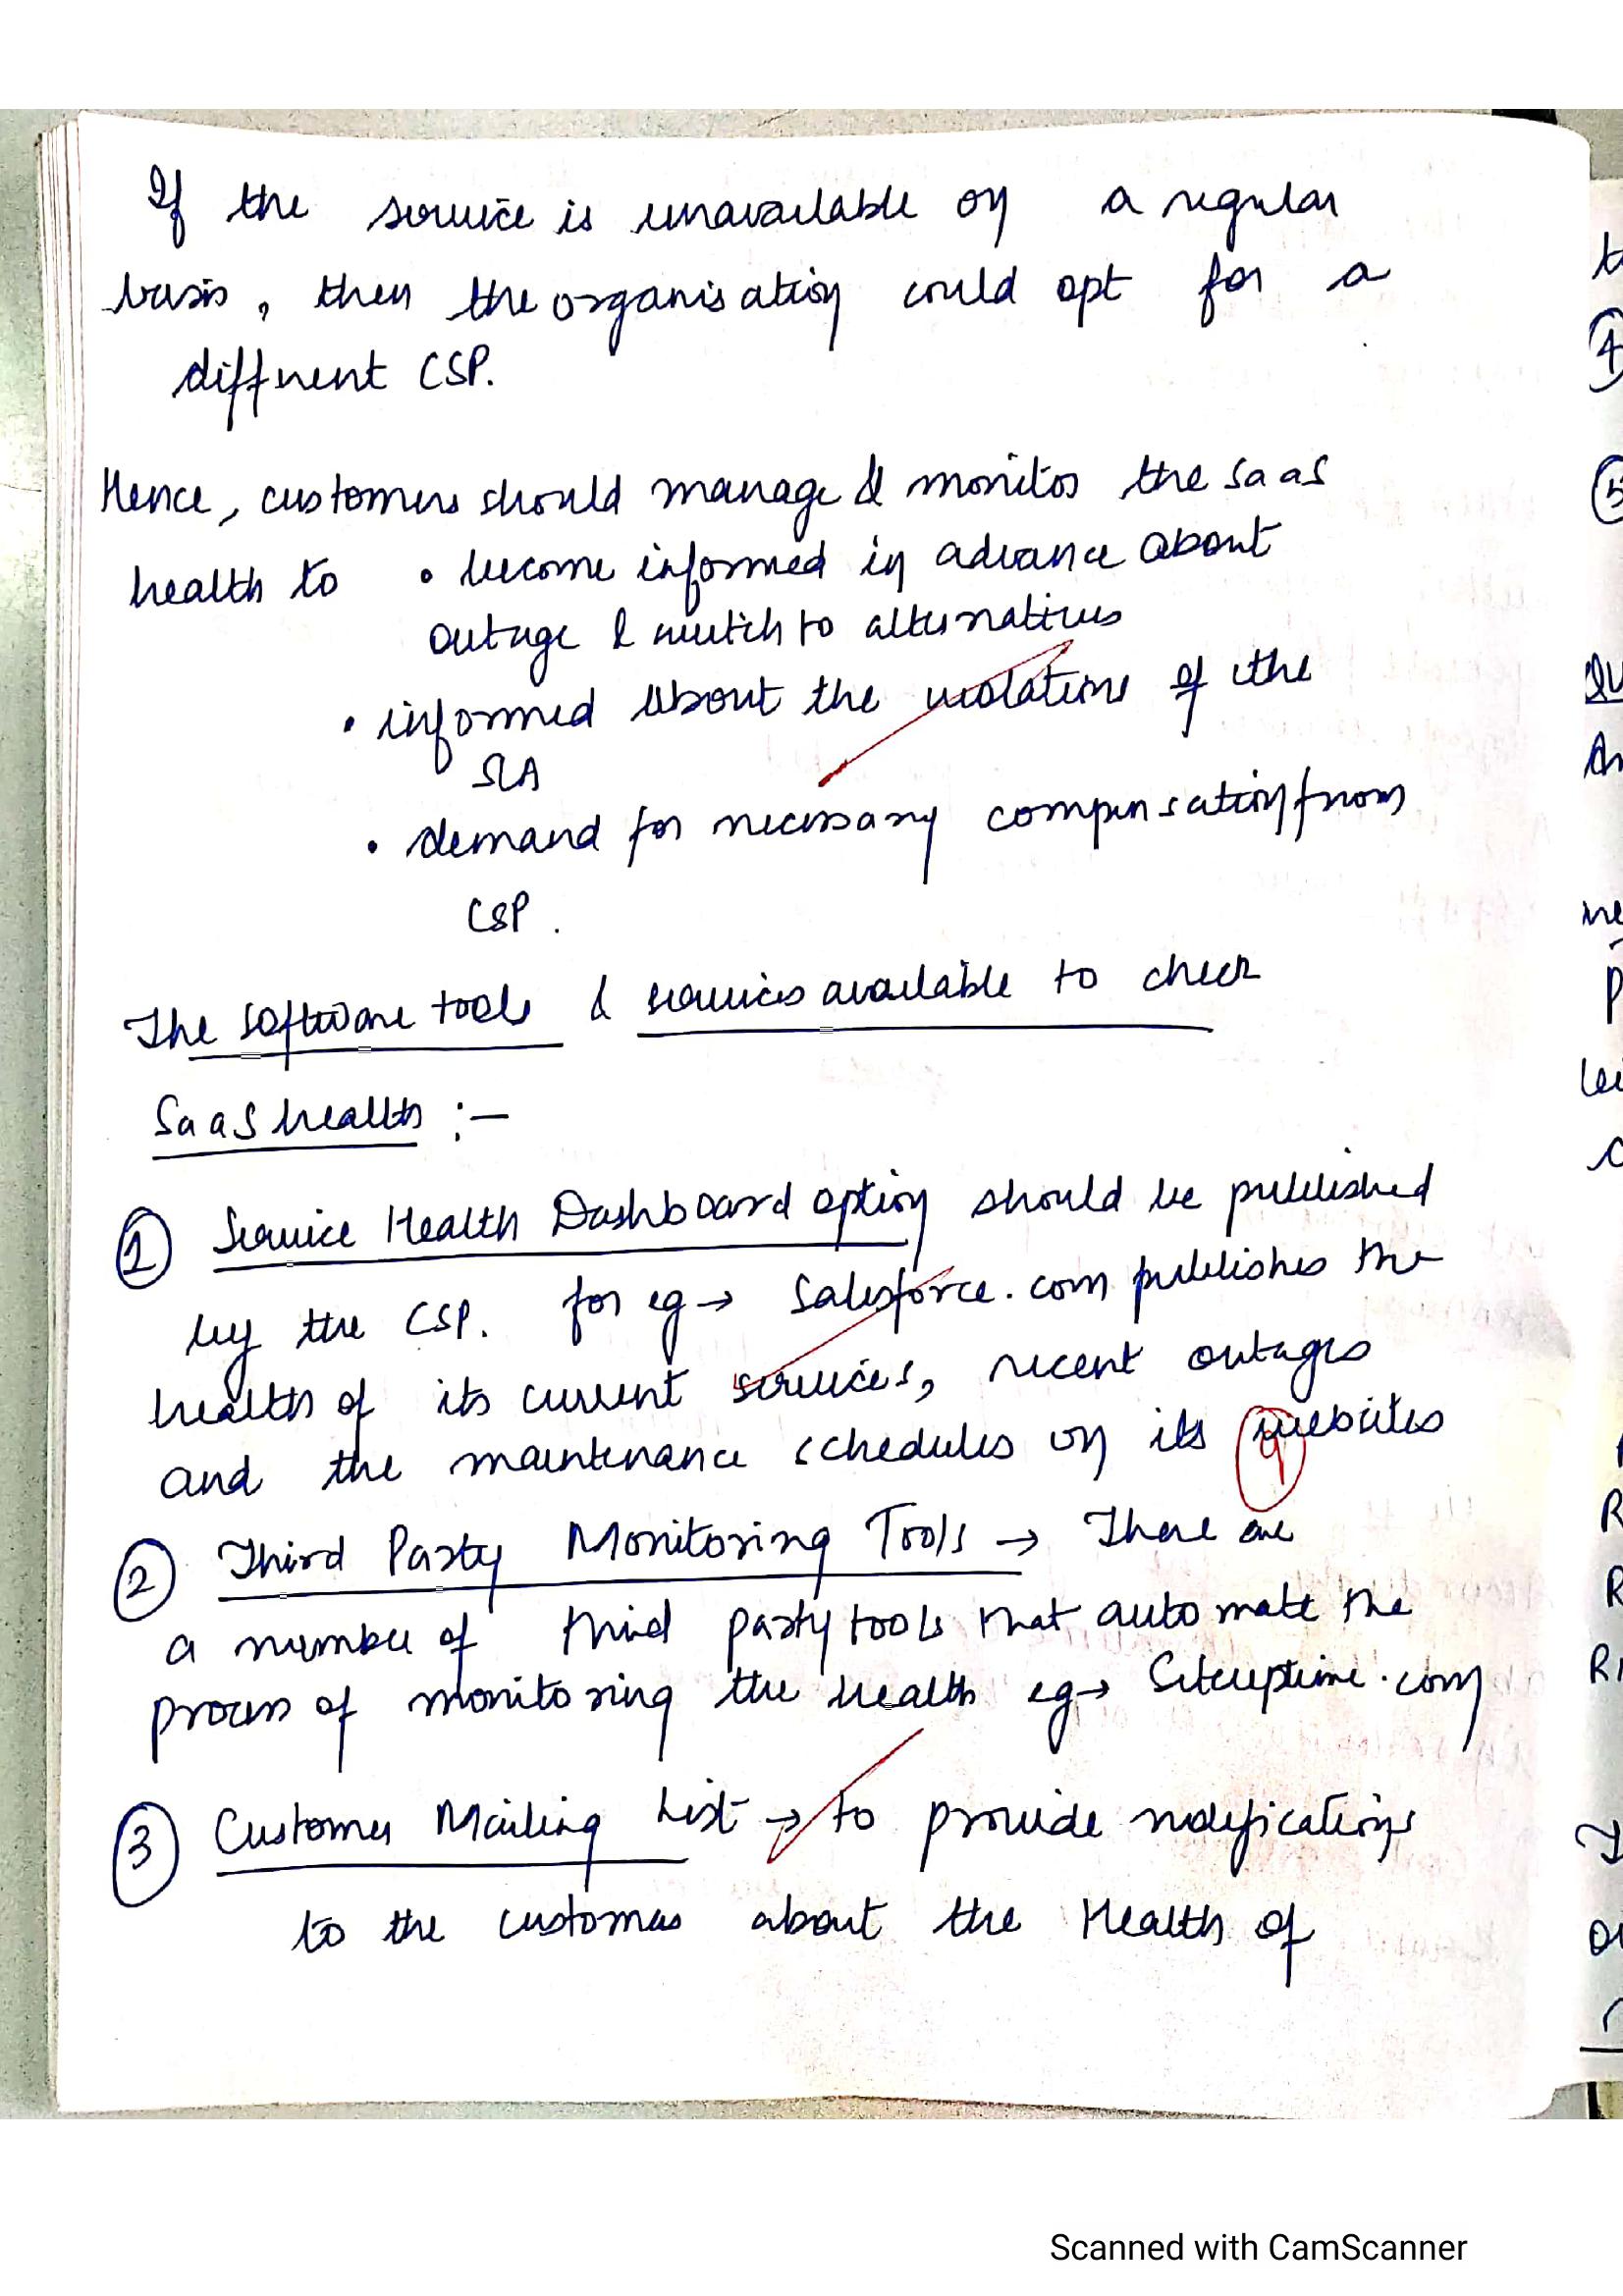 If the service is unavailable on a regular
basis, then the organisation could opt for a
different CSP.
Hence, customers should manage & monitor the SaaS
health to • become informed in advance about
outage & switch to alternatives
• informed about the violations of the
SLA
• demand for necessary compensation from
CSP.
The software tools & services available to check
SaaS health :-
① Service Health Dashboard option should be published
by the CSP. for eg → Salesforce.com publishes the
health of its current services, recent outages
and the maintenance schedules on its websites
9
② Third Party Monitoring Tools → There are
a number of third party tools that automate the
process of monitoring the health eg → Siteuptime.com
③ Customer Mailing List → to provide notifications
to the customers about the Health of
Scanned with CamScanner